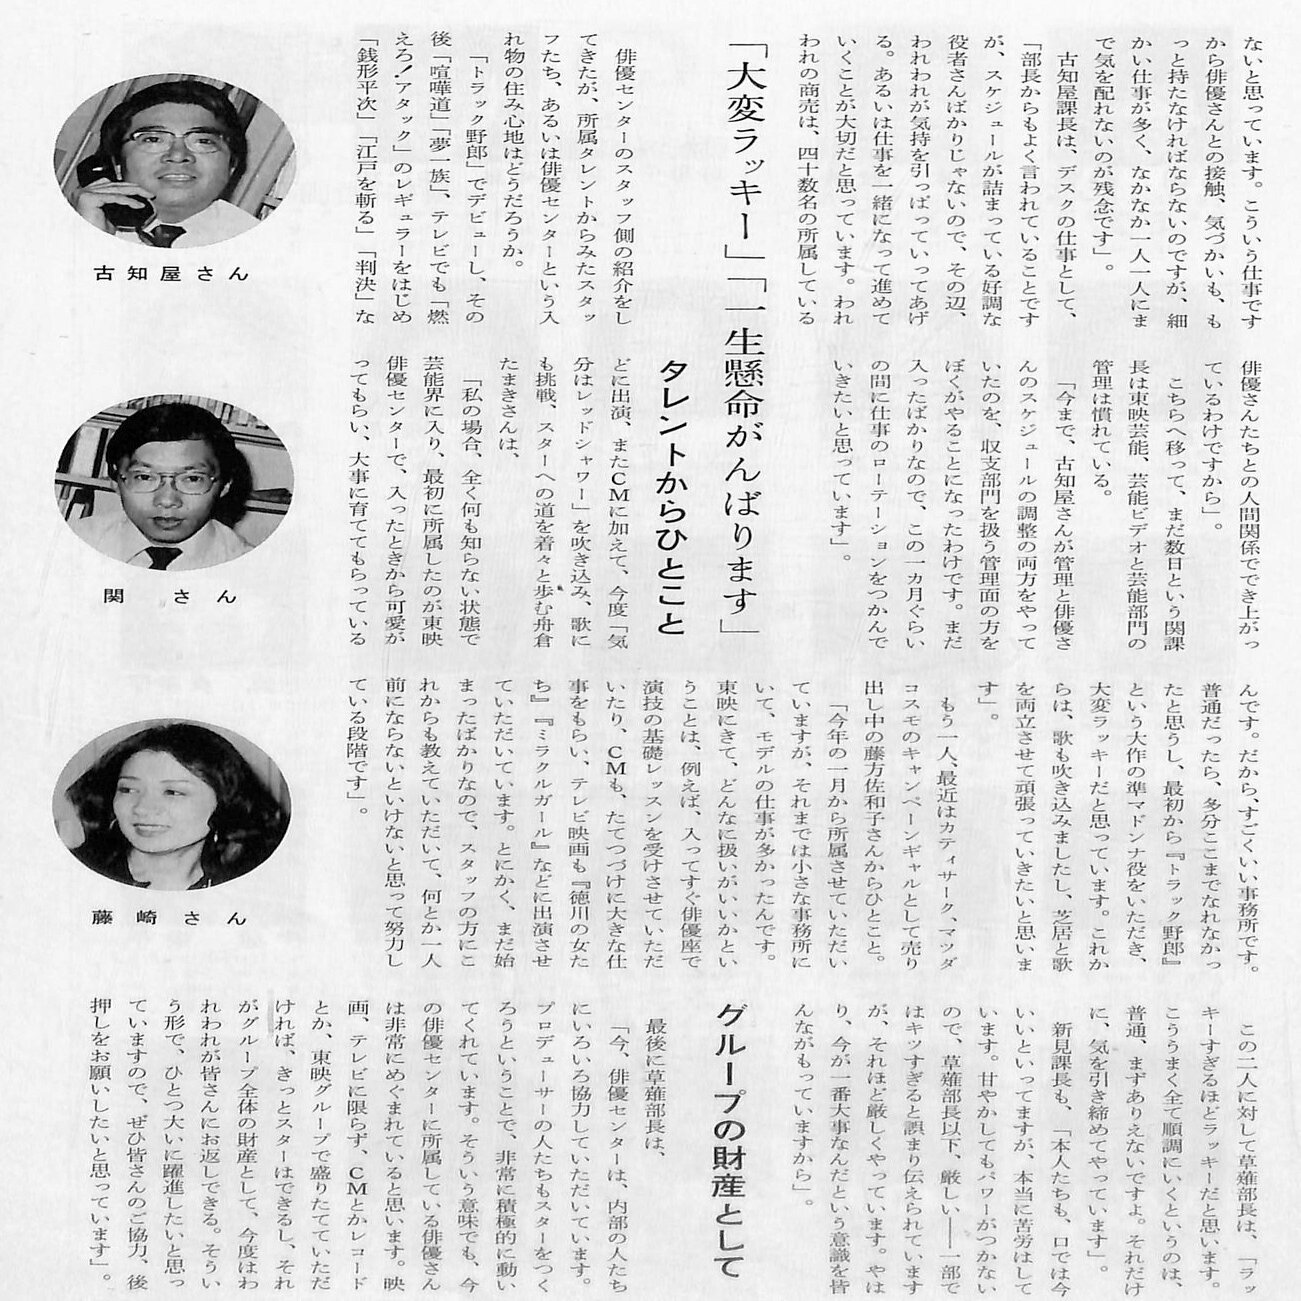 ないと思っています。こういう仕事です
から俳優さんとの接触、気づかいも、も
っと持たなければならないのですが、細
かい仕事が多く、なかなか一人一人にま
で気を配れないのが残念です」。
古知屋課長は、デスクの仕事として、
「部長からもよく言われていることです
が、スケジュールが詰まっている好調な
役者さんばかりじゃないので、その辺、
われわれが気持を引っぱっていってあげ
る。あるいは仕事を一緒になって進めて
いくことが大切だと思っています。われ
われの商売は、四十数名の所属している
俳優さんたちとの人間関係でき上がっ
ているわけですから」。
こちらへ移って、まだ数日という関課
長は東映芸能、芸能ビデオと芸能部門の
管理は慣れている。
「今まで、古知屋さんが管理と俳優さ
んのスケジュールの調整の両方をやって
いたのを、収支部門を扱う管理面の方を
ぼくがやることになったわけです。まだ
入ったばかりなので、この一カ月ぐらい
の間に仕事のローテーションをつかんで
いきたいと思っています」。
「大変ラッキー」「一生懸命がんばります」
タレントからひとこと
俳優センターのスタッフ側の紹介をし
てきたが、所属タレントからみたスタッ
フたち、あるいは俳優センターという入
れ物の住み心地はどうだろうか。
「トラック野郎」でデビューし、その
後「喧嘩道」「夢一族」、テレビでも「燃
えろ！アタック」のレギュラーをはじめ
「銭形平次」「江戸を斬る」「判決」な
どに出演、またCMに加えて、今度「気
分はレッドシャワー」を吹き込み、歌に
も挑戦、スターへの道を着々と歩む舟倉
たまきさんは、
「私の場合、全く何も知らない状態で
芸能界に入り、最初に所属したのが東映
俳優センターで、入ったときから可愛が
ってもらい、大事に育ててもらっている
んです。だから、すごくいい事務所です。
普通だったら、多分ここまでなれなかっ
たと思うし、最初から『トラック野郎』
という大作の準マドンナ役をいただき、
大変ラッキーだと思っています。これか
らは、歌も吹き込みましたし、芝居と歌
を両立させて頑張っていきたいと思いま
す」。
もう一人、最近はカティサーク、マツダ
コスモのキャンペーンギャルとして売り
出し中の藤方佐和子さんからひとこと。
「今年の一月から所属させていただい
ていますが、それまでは小さな事務所に
いて、モデルの仕事が多かったんです。
東映にきて、どんなに扱いがいいかとい
うことは、例えば、入ってすぐ俳優座で
演技の基礎レッスンを受けさせていただ
いたり、CMも、たてつづけに大きな仕
事をもらい、テレビ映画も『徳川の女た
ち』『ミラクルガール』などに出演させ
ていただいています。とにかく、まだ始
まったばかりなので、スタッフの方にこ
れからも教えていただいて、何とか一人
前にならないといけないと思って努力し
ている段階です」。
この二人に対して草薙部長は、「ラッ
キーすぎるほどラッキーだと思います。
こううまく全て順調にいくというのは、
普通、まずありえないですよ。それだけ
に、気を引き締めてやっています」。
新見課長も、「本人たちも、口では今
いいといってますが、本当に苦労はして
います。甘やかしてもパワーがつかない
ので、草薙部長以下、厳しい――一部で
はキツすぎると誤まり伝えられています
が、それほど厳しくやっています。やは
り、今が一番大事なんだという意識を皆
んながもっていますから」。
グループの財産として
最後に草薙部長は、
「今、俳優センターは、内部の人たち
にいろいろ協力していただいています。
プロデューサーの人たちもスターをつく
ろうということで、非常に積極的に動い
てくれています。そういう意味でも、今
の俳優センターに所属している俳優さん
は非常にめぐまれていると思います。映
画、テレビに限らず、CMとかレコード
とか、東映グループで盛りたてていただ
ければ、きっとスターはできるし、それ
がグループ全体の財産として、今度はわ
れわれが皆さんにお返しできる。そうい
う形で、ひとつ大いに躍進したいと思っ
ていますので、ぜひ皆さんのご協力、後
押しをお願いしたいと思っています」。
古知屋さん
関さん
藤崎さん